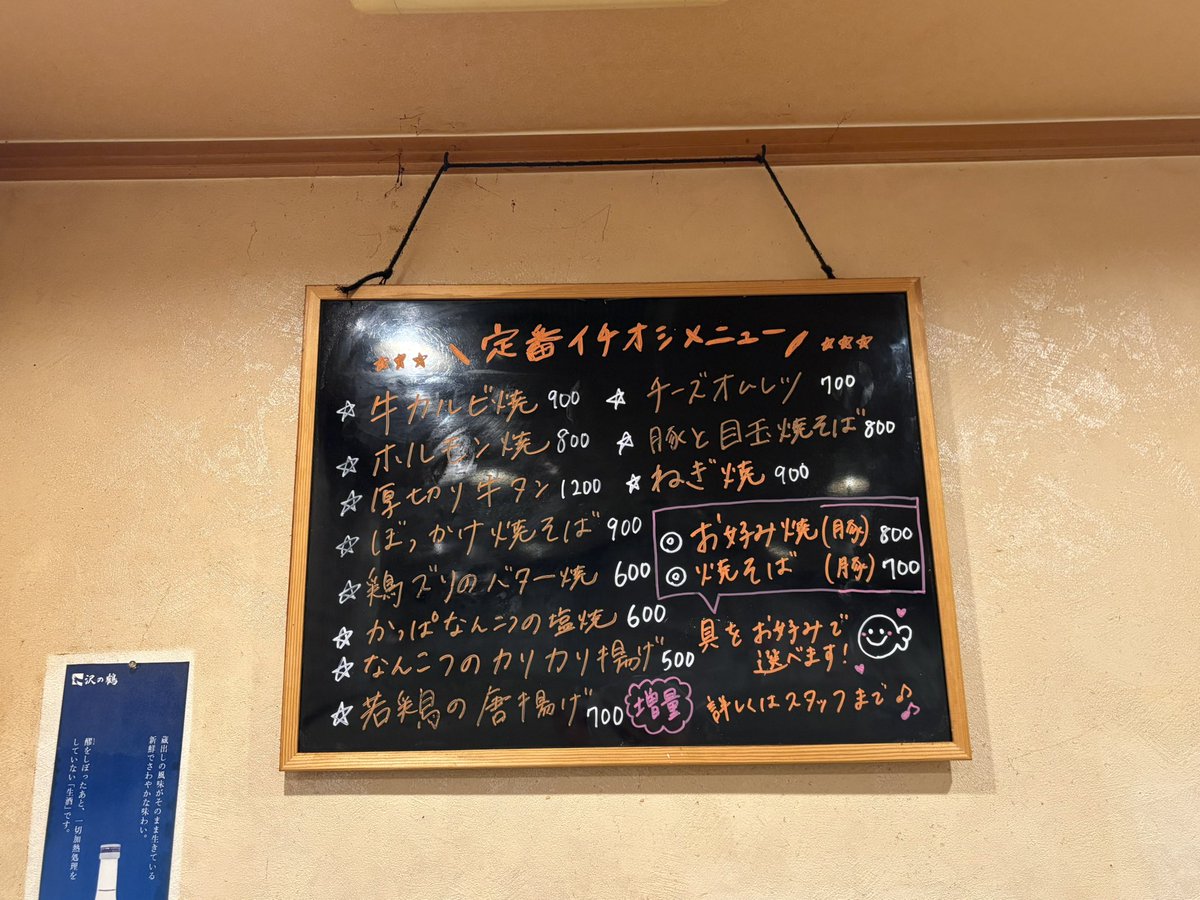 定番イチオシメニュー
☆ 牛カルビ焼 900
☆ ホルモン焼 800
☆ 厚切り牛タン 1200
☆ ぼっかけ焼そば 900
☆ 鶏ズリのバター焼 600
☆ かっぱなんこつの塩焼 600
☆ なんこつのカリカリ揚げ 500
☆ 若鶏の唐揚げ 700 増量
☆ チーズオムレツ 700
☆ 豚と目玉焼そば 800
☆ ねぎ焼 900
◎ お好み焼(豚) 800
◎ 焼そば (豚) 700
具をお好みで
選べます!
詳しくはスタッフまで♪
沢の鶴
蔵出しの風味がそのまま生きている
新鮮でさわやかな味わい。
醪をしぼったあと、一切加熱処理を
していない「生酒」です。